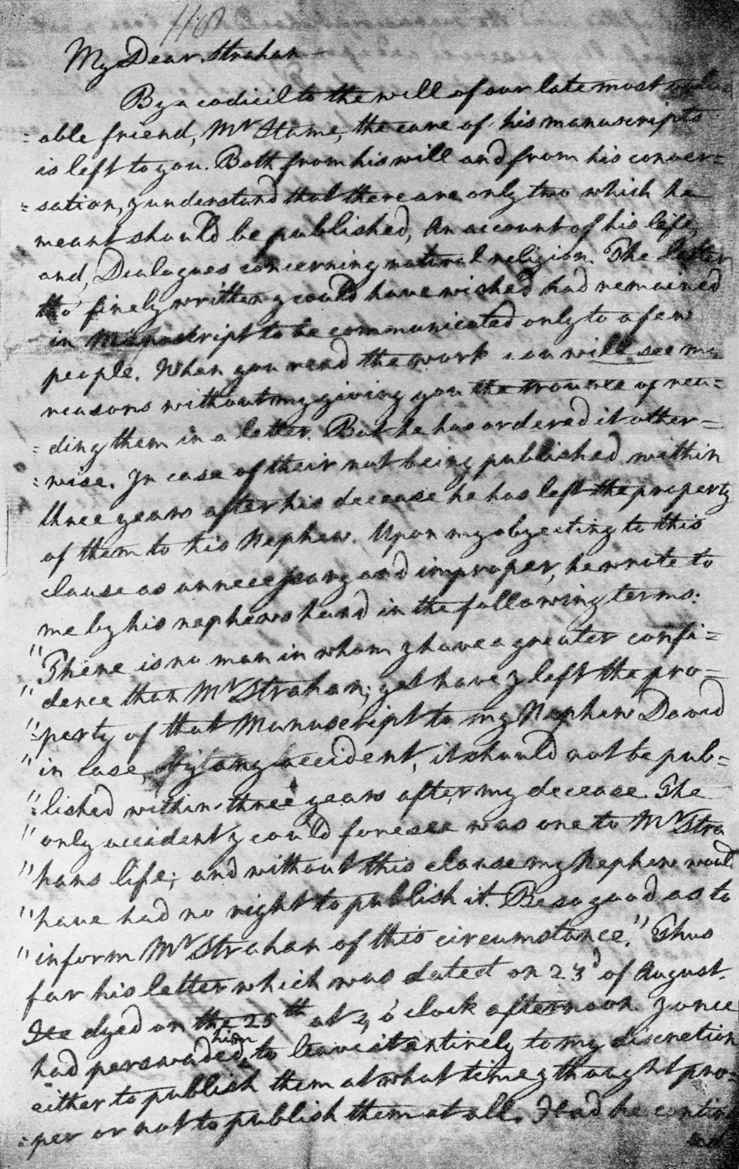 My Dear Strahan
By a codicil to the will of our late most valu=
=able friend, Mr Hume, the care of his manuscripts
is left to you. Both from his will and from his conver=
=sation, I understand that there are only two which he
meant should be published, An account of his life,
and, Dialogues concerning natural religion. The latter
tho' finely written I could have wished had remained
in Manuscript to be communicated only to a few
people. When you read the work you will see my
reasons without my giving you the trouble of rea=
=ding them in a letter. But he has ordered it other=
=wise. In case of their not being published within
three years after his decease he has left the property
of them to his Nephew. Upon my objecting to this
clause as unnecessary and improper, he wrote to
me by his nephews hand in the following terms.
"There is no man in whom I have a greater confi=
"dence than Mr Strahan; yet have I left the pro=
"=perty of that Manuscript to my Nephew David
"in case, by any accident, it should not be pub=
"=lished within three years after my decease. The
"only accident I could foresee was one to Mr Stra
"hans life; and without this clause my Nephew would
"have had no right to publish it. Be so good as to
"inform Mr Strahan of this circumstance." Thus
far his letter which was dated on 23d of August.
He dyed on the 25th at 4 o'clock afternoon. I once
had perswaded him to leave it entirely to my discretion
either to publish them at what time I thought pro=
=per or not to publish them at all. Had he contin